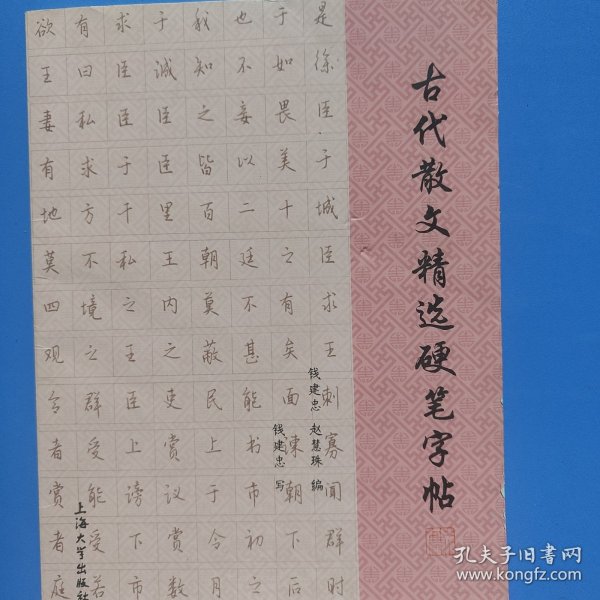 古代散文精选硬笔字帖
钱建忠 赵慧珠 编
钱建忠 写
上海大学出版社
欲有求于我也于是
王曰臣诚知不如徐
妻私臣臣之妾畏臣
有求于臣皆以美于
地方千里百二十城
莫不私王朝廷之臣
四境之内莫不有求
观之王之蔽甚矣王
令群臣吏民能面刺
者受上赏上书谏寡
赏能谤议于市朝闻
者受下赏令初下群
庭若市数月之后时
孔夫子旧书网
www.kongfz.com